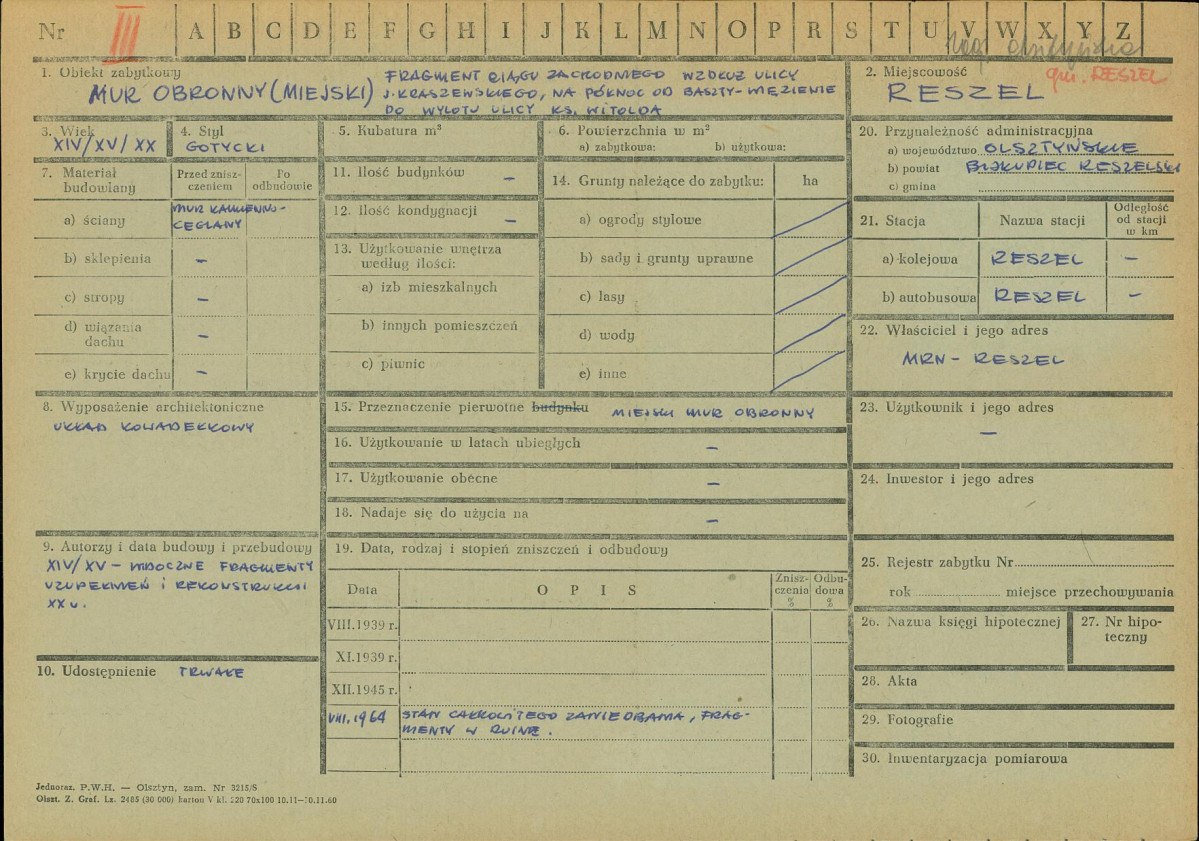 Nr III A B C D E F G H I J K L M N O P R S T U V W X Y Z
gm. RESZEL
1. Obiekt zabytkowy
MUR OBRONNY (MIEJSKI)
FRAGMENT CIĄGU ZACHODNIEGO WZDŁUŻ ULICY
J. KRASZEWSKIEGO, NA PÓŁNOC OD BASZTY-WIĘZIENIE
DO WYLOTU ULICY KS. WITOLDA
2. Miejscowość
RESZEL
3. Wiek
XIV/XV/XX
4. Styl
GOTYCKI
5. Kubatura m³
6. Powierzchnia w m²
a) zabytkowa: b) użytkowa:
7. Materiał
budowlany
Przed znisz-
czeniem
Po
odbudowie
a) ściany
MUR KAMIENNO-
CEGLANY
b) sklepienia –
c) stropy –
d) wiązania
dachu –
e) krycie dachu –
8. Wyposażenie architektoniczne
UKŁAD KOWADEŁKOWY
9. Autorzy i data budowy i przebudowy
XIV/XV – WIDOCZNE FRAGMENTY
UZUPEŁNIEŃ I REKONSTRUKCJI
XX w.
10. Udostępnienie TRWAŁE
11. Ilość budynków –
12. Ilość kondygnacji –
13. Użytkowanie wnętrza
według ilości:
a) izb mieszkalnych
b) innych pomieszczeń
c) piwnic
14. Grunty należące do zabytku: ha
a) ogrody stylowe
b) sady i grunty uprawne
c) lasy
d) wody
e) inne
15. Przeznaczenie pierwotne budynku MIEJSKI MUR OBRONNY
16. Użytkowanie w latach ubiegłych –
17. Użytkowanie obecne –
18. Nadaje się do użycia na –
19. Data, rodzaj i stopień zniszczeń i odbudowy
Data OPIS
Znisz-
czenia
%
Odbu-
dowa
%
VIII.1939 r.
XI.1939 r.
XII.1945 r.
VIII.1964 STAN CAŁKOWITEGO ZANIEDBANIA, FRAG-
MENTY W RUINIE.
20. Przynależność administracyjna
a) województwo OLSZTYŃSKIE
b) powiat BISKUPIEC RESZELSKI
c) gmina
21. Stacja Nazwa stacji
Odległość
od stacji
w km
a) kolejowa RESZEL –
b) autobusowa RESZEL –
22. Właściciel i jego adres
MRN – RESZEL
23. Użytkownik i jego adres
–
24. Inwestor i jego adres
25. Rejestr zabytku Nr
rok miejsce przechowywania
26. Nazwa księgi hipotecznej
27. Nr hipo-
teczny
28. Akta
29. Fotografie
30. Inwentaryzacja pomiarowa
Jednoraz. P.W.H. — Olsztyn, zam. Nr 3215/S
Olszt. Z. Graf. Lz. 2485 (30 000) karton V kl. 220 70x100 10.11—30.11.60